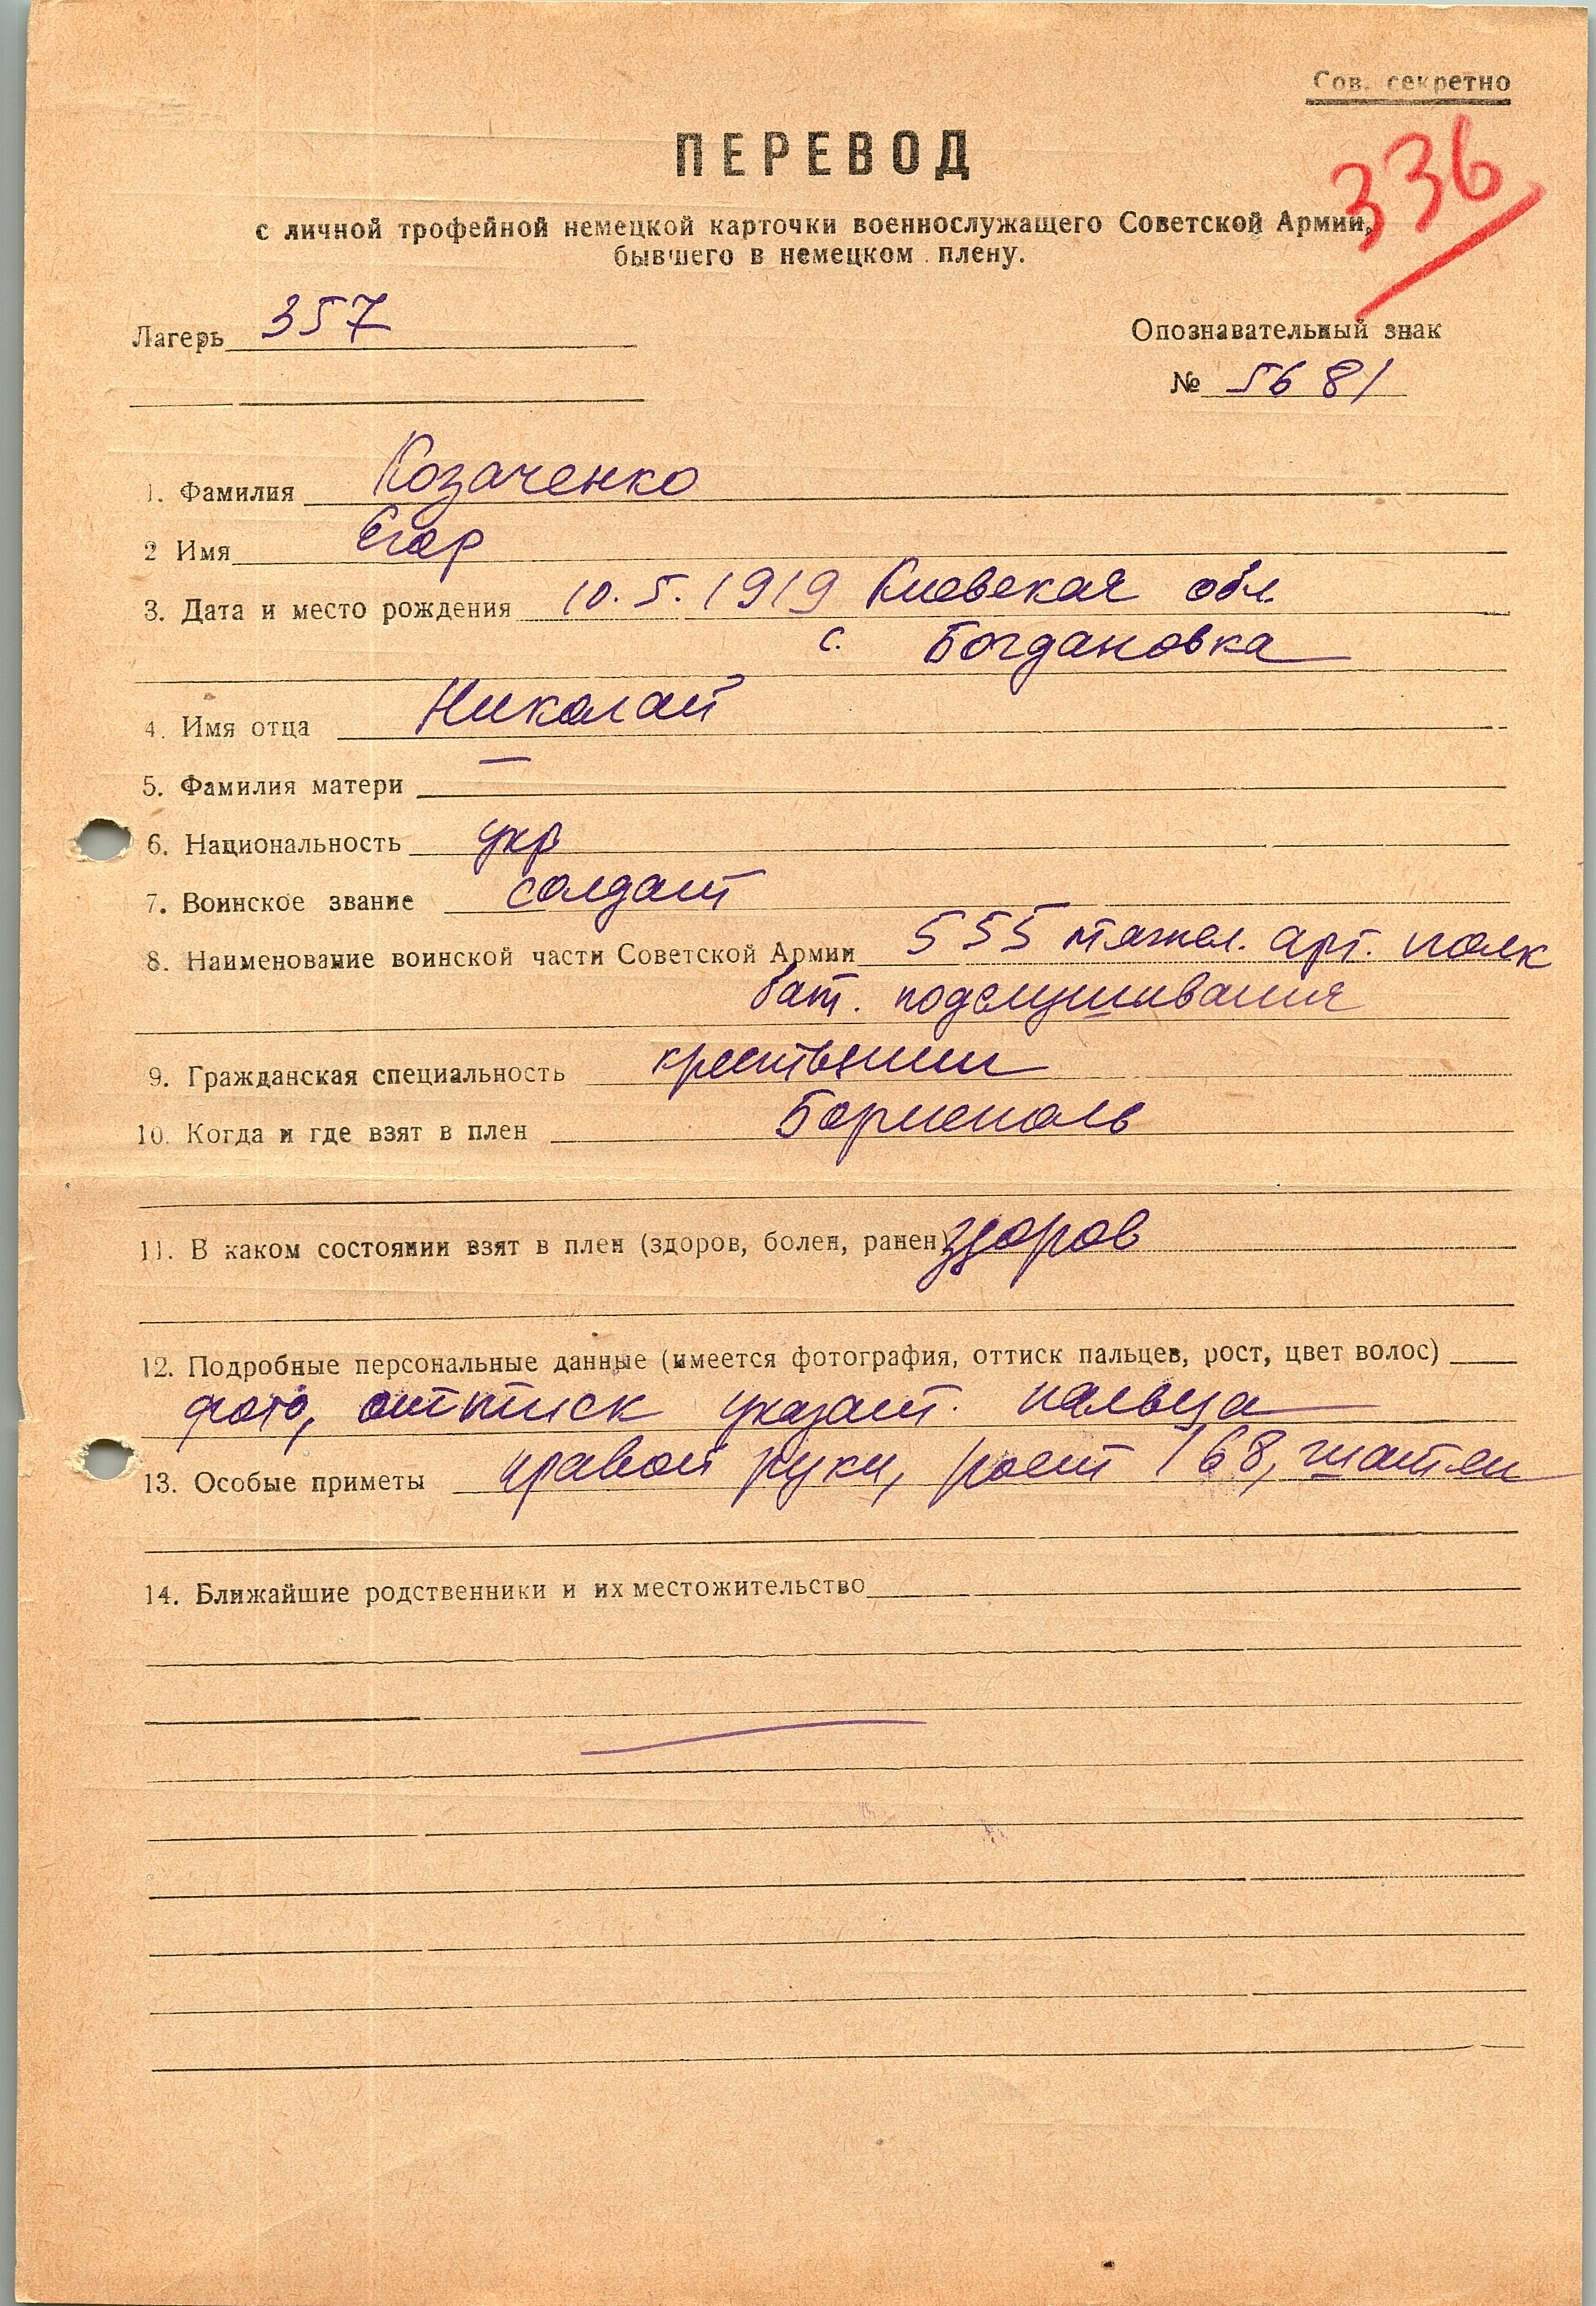 Сов. секретно
336
ПЕРЕВОД
с личной трофейной немецкой карточки военнослужащего Советской Армии,
бывшего в немецком плену.
Лагерь 357
Опознавательный знак
№ 5681
1. Фамилия Козаченко
2 Имя Егор
3. Дата и место рождения 10.5.1919 Киевская обл.
с. Богдановка
4. Имя отца Николай
5. Фамилия матери —
6. Национальность укр
7. Воинское звание солдат
8. Наименование воинской части Советской Армии 555 тяжел. арт. полк
бат. подслушивания
9. Гражданская специальность крестьянин
10. Когда и где взят в плен Борисполь
11. В каком состоянии взят в плен (здоров, болен, ранен) здоров
12. Подробные персональные данные (имеется фотография, оттиск пальцев, рост, цвет волос)
фото, оттиск указат. пальца
13. Особые приметы правой руки, рост 168, шатен
14. Ближайшие родственники и их местожительство